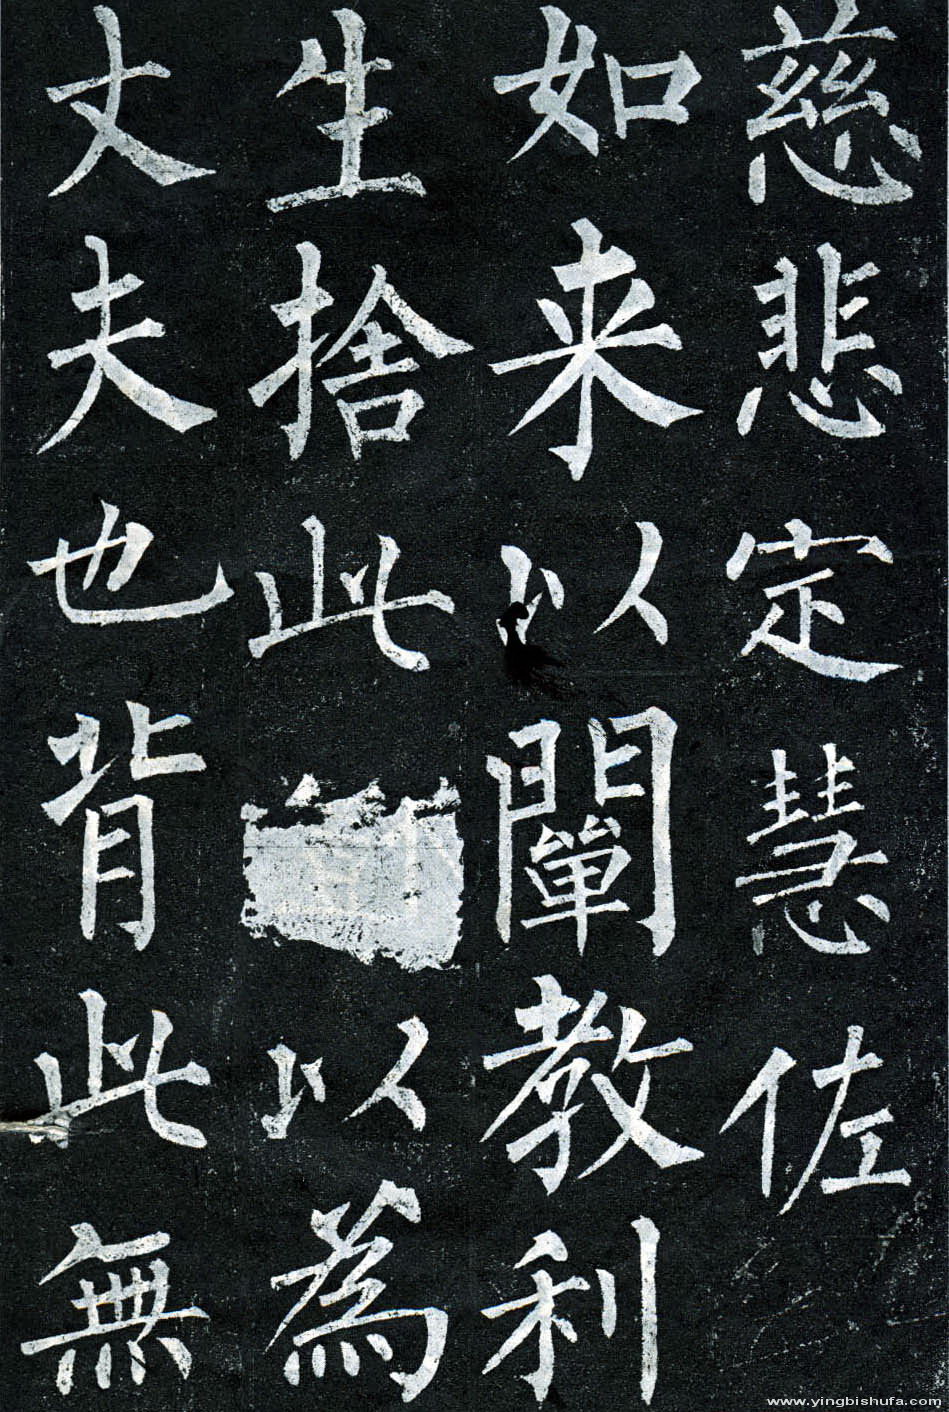 慈悲定慧佐
如来以闡教利
生捨此以為
丈夫也背此無
www.yingbishufa.com